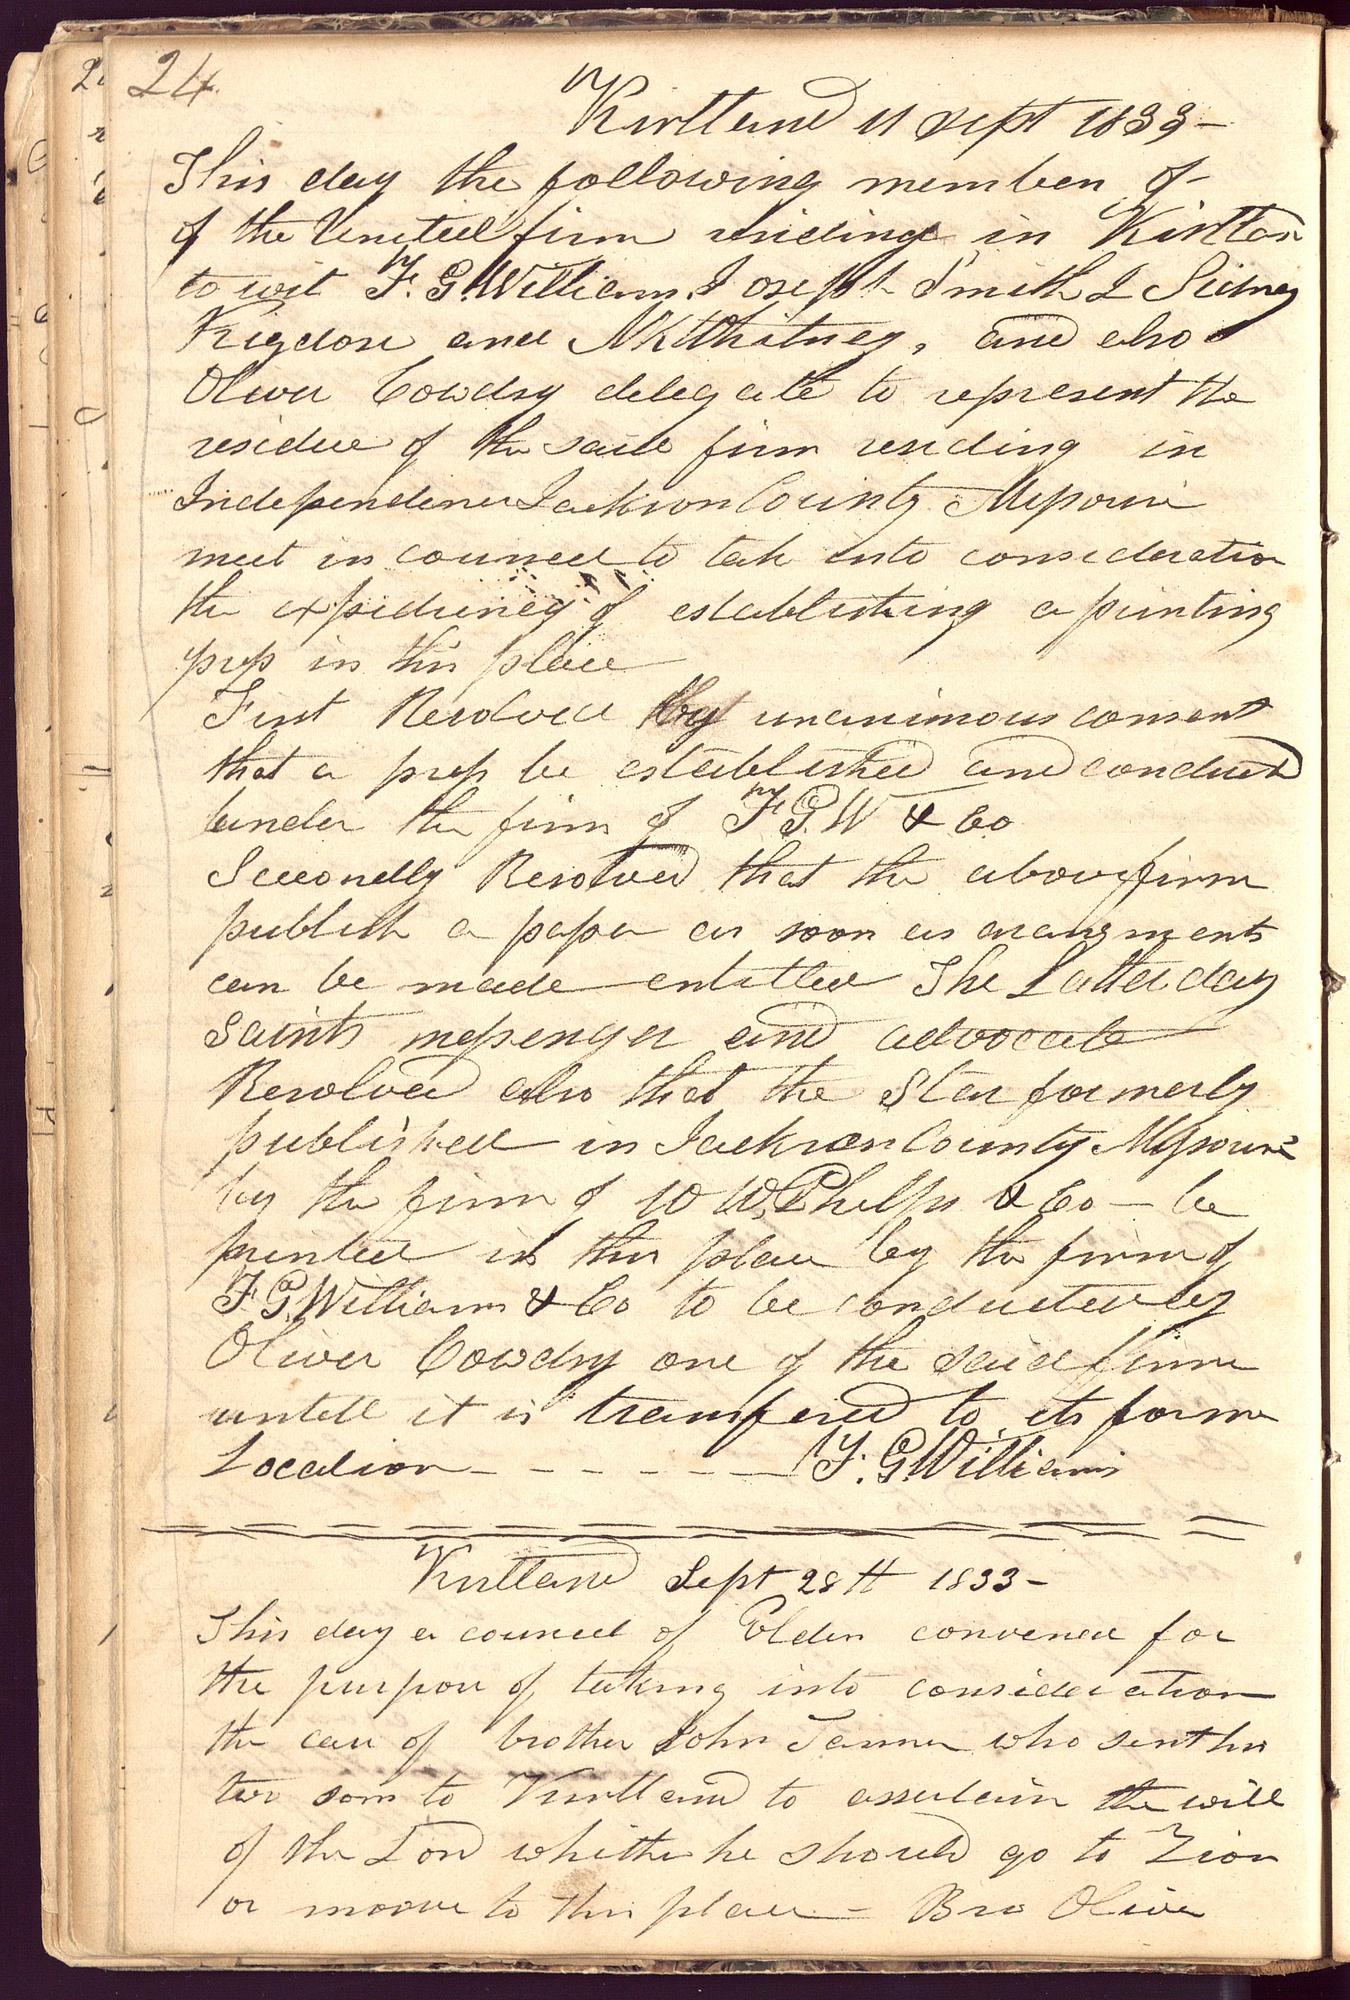 24
Kirtland 11 sept 1833—
This day the following member of
of the United firm residing in Kirtlan
to wit F. G. Williams Joseph Smith J Sidney
Rigdon and N K Whitney, and also
Oliver Cowdry delegate to represent the
residue of the said firm residing in
Independence Jackson County Missouri
meet in councel to take into consideration
the expediency of establishing a printing
press in this place
First Resolved by unanimous consent
that a press be established and conducted
under the firm of F. G. W & Co
Seconedly Resolved that the above firm
publish a paper as soon as arangments
can be made entitled The Latter day
Saints messenger and advocate
Resolved also that the Star formerly
published in Jackson County Missouri
by the firm of W W. Phelps & Co — be
printed in this place by the firm of
F. G. Williams & Co to be conducted by
Oliver Cowdry one of the said firm
untill it is transfered to its former
Location — — — — — — F. G. Williams
Kirtland Sept 28th 1833—
This day a councel of Elders convened for
the purpose of takeing into consideration
the case of brother John Tanner who sent his
two sons to Kirtland to assertain the will
of the Lord whither he should go to Zion
or moove to this place — Bro Oliver